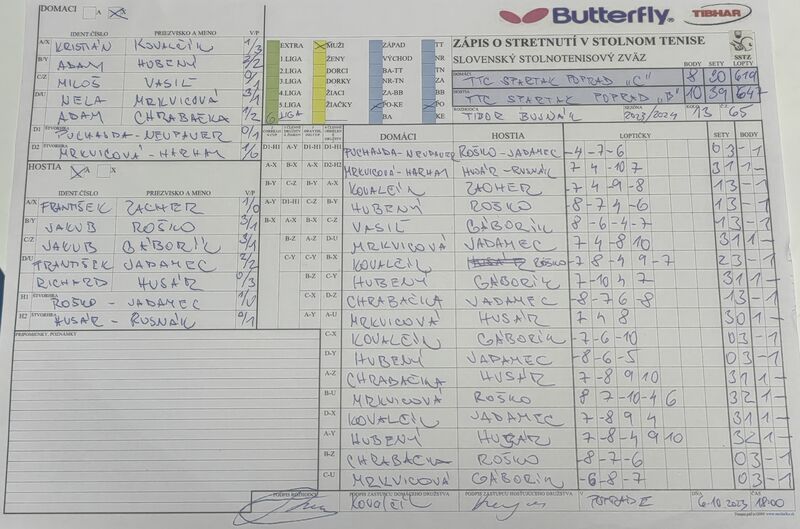 DOMÁCI A X
Butterfly
TIBHAR
IDENT.ČÍSLO PRIEZVISKO A MENO V/P
A/X KRISTIÁN KOVALČÍK 1/3
B/Y ADAM HUBENÝ 2/2
C/Z MILOŠ VASIL 0/1
D/U NELA MRKVICOVÁ 3/1
ADAM CHRABAČKA 1/2
D1 PUCHAJDA-NEUPAUER 0/1
D2 MRKVICOVÁ-HARHAM
HOSTIA A X
IDENT.ČÍSLO PRIEZVISKO A MENO V/P
A/X FRANTIŠEK ZACHER 1/0
B/Y JAKUB ROŠKO 3/1
C/Z JAKUB GÁBORÍK
D/U FRANTIŠEK JADAMEC 2/2
RICHARD HUSÁR 0/3
H1 ŠTVORHRA ROŠKO - JADAMEC
H2 ŠTVORHRA HUSÁR - RUSNÁK 0/1
PRIPOMIENKY, POZNÁMKY
EXTRA MUŽI ZÁPAD TT
1.LIGA ŽENY VÝCHOD NR
2.LIGA DORCI BA-TT TN
3.LIGA DORKY NR-TN ZA
4.LIGA ŽIACI ZA-BB BB
5.LIGA ŽIAČKY PO-KE PO
6 LIGA BA KE
ZÁPIS O STRETNUTÍ V STOLNOM TENISE
SLOVENSKÝ STOLNOTENISOVÝ ZVÄZ
SSTZ
BODY SETY LOPTY
DOMÁCI TTC SPARTAK POPRAD "C" 8 30 619
HOSTIA TTC SPARTAK POPRAD "B" 10 39 647
ROZHODCA TIBOR BUJŇÁK SEZÓNA 2023/2024 KOLO 13 65
DOMÁCI HOSTIA LOPTIČKY SETY BODY
D1-H1 A-Y D1-H1 D1-H1 PUCHAJDA-NEUPAUER ROŠKO-JADAMEC -4 -7 -6 0 3 - 1
A-X B-X D2-H2 MRKVICOVÁ-HARHAM HUSÁR-RUSNÁK 7 4 -10 7 3 1 1 -
B-Y C-Z B-Y A-X KOVALČÍK ZACHER -7 4 -9 -8 1 3 - 1
A-Y D1-H1 C-Z B-Y HUBENÝ ROŠKO -8 -7 4 -6 1 3 - 1
B-X A-X B-X C-Z VASIL GÁBORÍK 8 -6 -4 -7 1 3 - 1
B-Z A-Z D-U MRKVICOVÁ JADAMEC 7 4 -8 10 3 1 1 -
C-Y C-Y B-X KOVALČÍK ROŠKO -7 8 4 -9 -7 2 3 - 1
B-Z C-Y HUBENÝ GÁBORÍK 7 -10 4 7 3 1 1 -
C-X D-Z CHRABAČKA JADAMEC -8 -7 6 -8 1 3 - 1
A-Y A-U MRKVICOVÁ HUSÁR 7 4 8 3 0 1 -
C-X KOVALČÍK GÁBORÍK -7 -6 -10 0 3 - 1
D-Y HUBENÝ JADAMEC -8 -6 -5 0 3 - 1
A-Z CHRABAČKA HUSÁR 7 -8 9 10 3 1 1 -
B-U MRKVICOVÁ ROŠKO 8 7 -10 -4 6 3 2 1 -
D-X KOVALČÍK JADAMEC 7 -8 9 4 3 1 1 -
A-Y HUBENÝ HUSÁR 7 -8 -4 9 10 3 2 1 -
B-Z CHRABAČKA ROŠKO -8 -7 -6 0 3 - 1
C-U MRKVICOVÁ GÁBORÍK -6 -8 -7 0 3 - 1
PODPIS ROZHODCU PODPIS ZÁSTUPCU DOMÁCEHO DRUŽSTVA KOVALČÍK PODPIS ZÁSTUPCU HOSŤUJÚCEHO DRUŽSTVA V POPRADE DŇA 6.10.2023 18:00